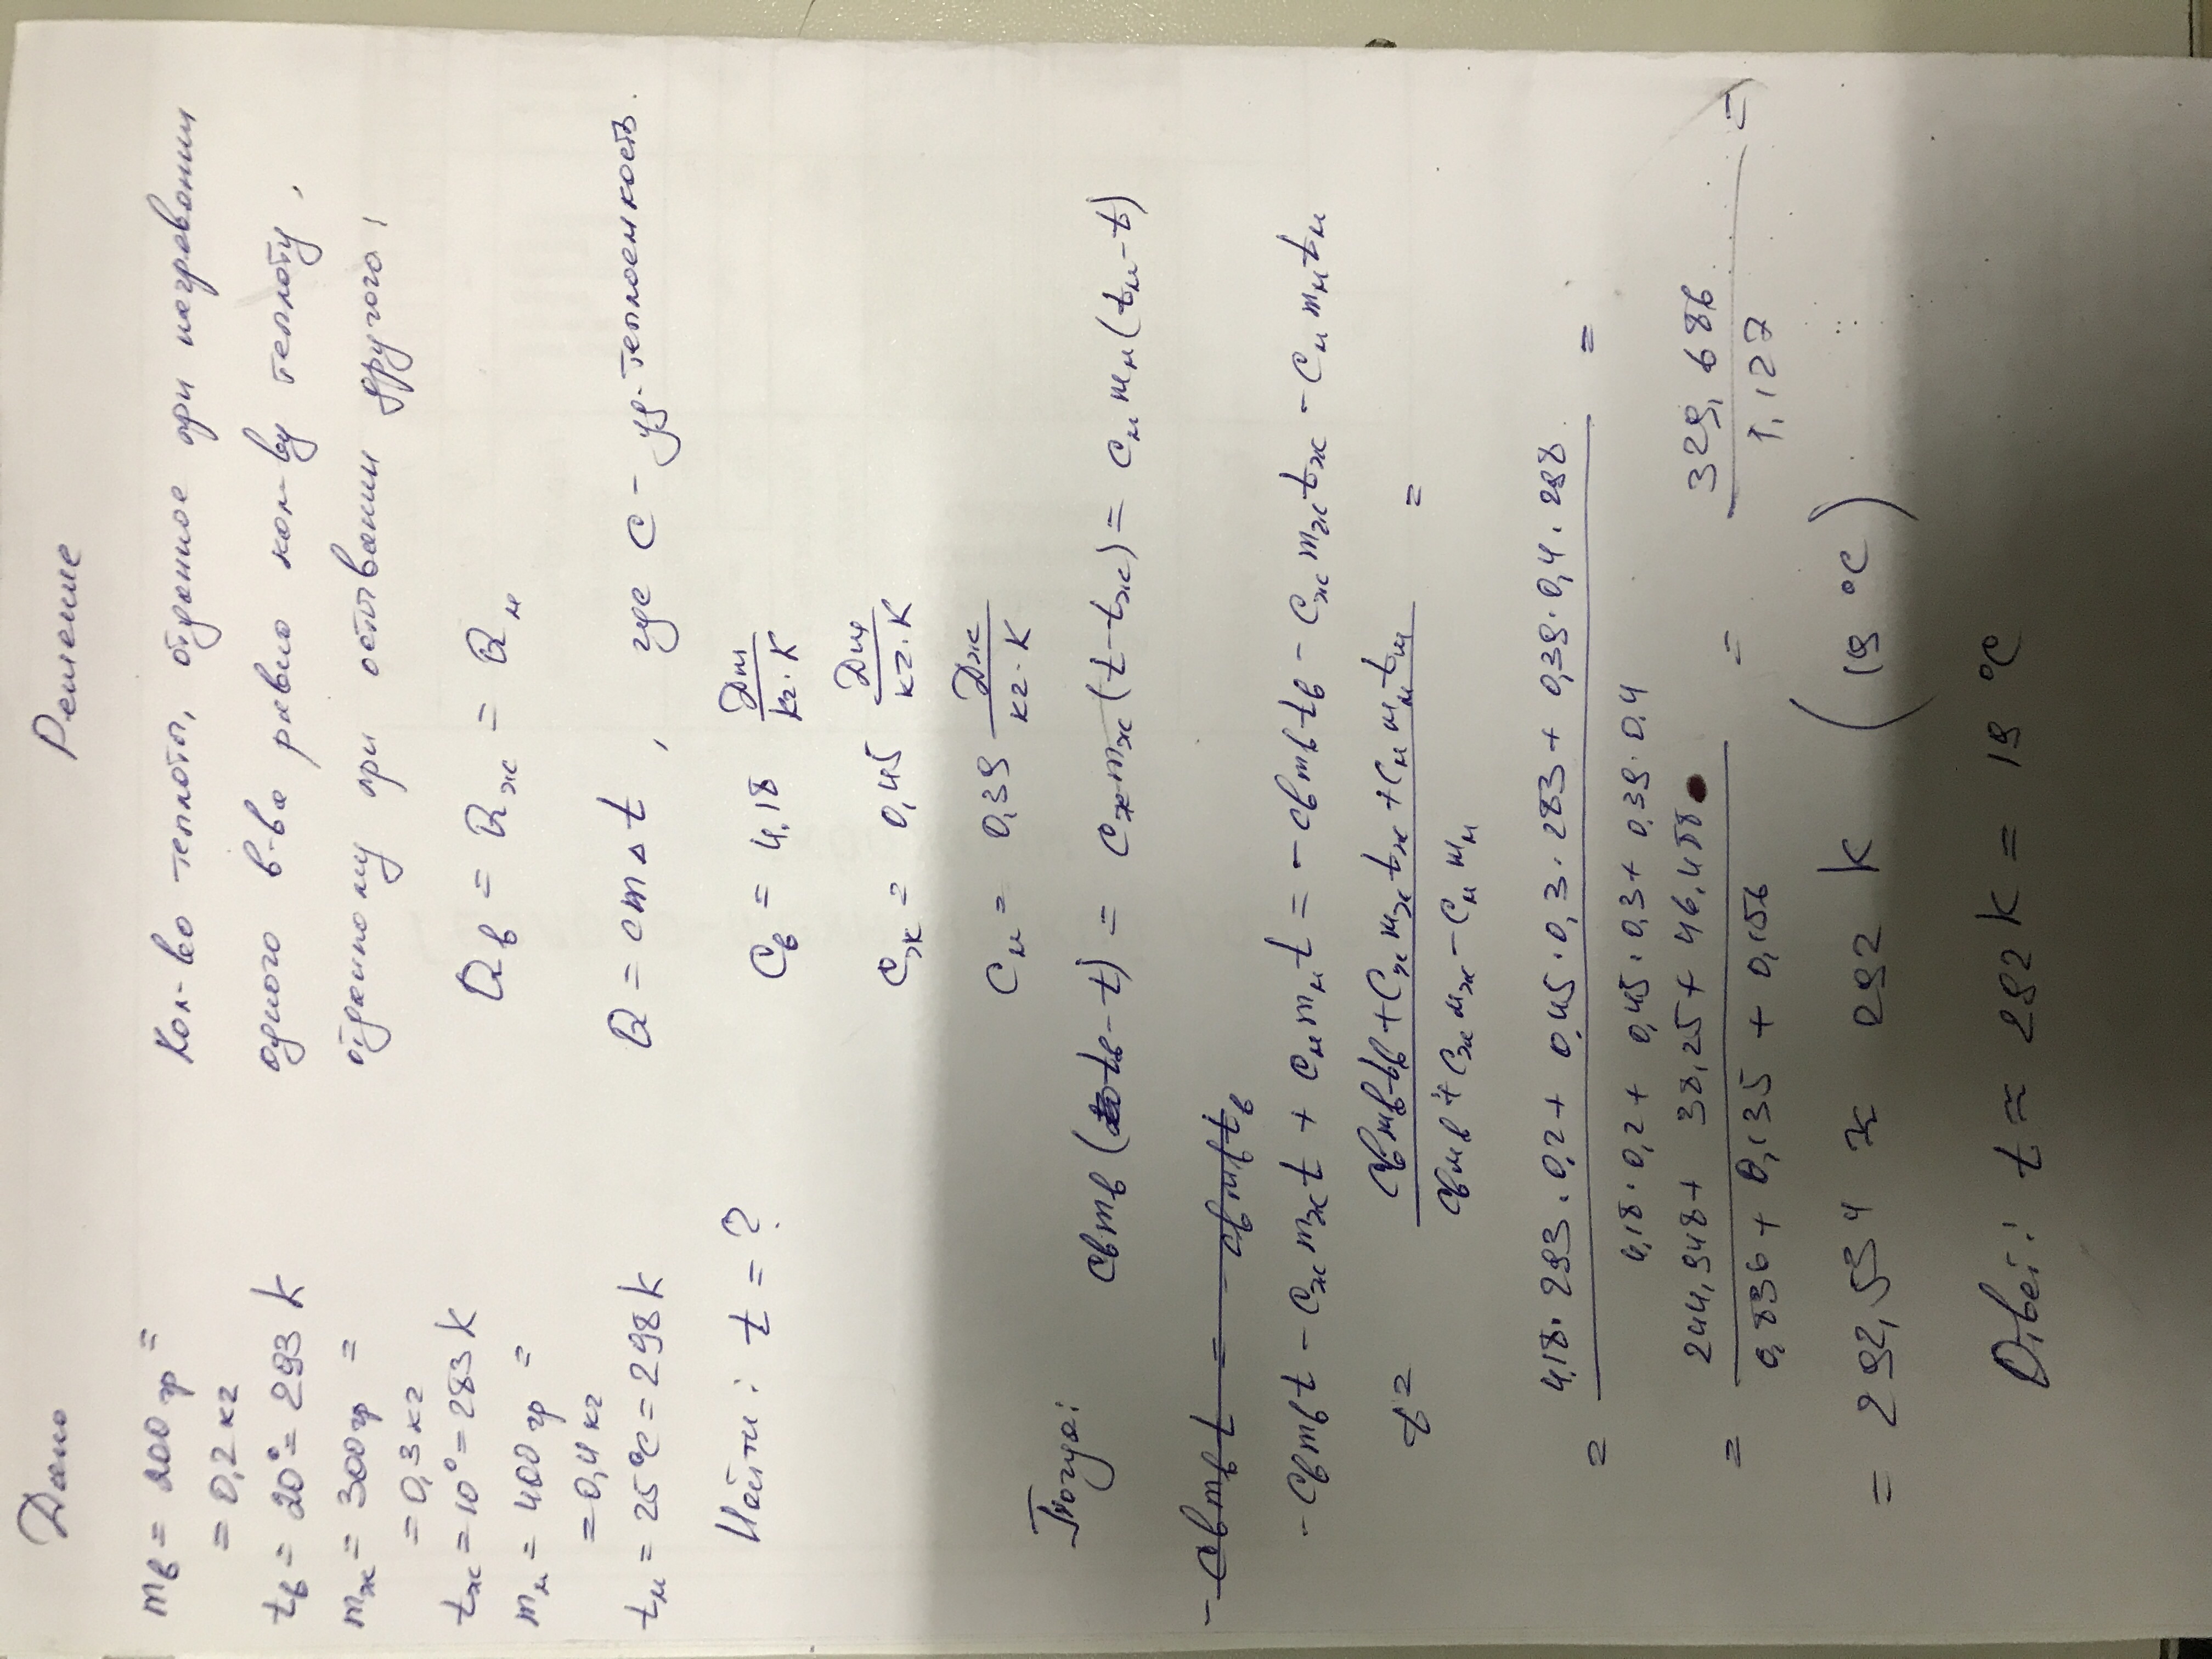 Дано
Решение
mв = 200 гр =
= 0,2 кг
tв = 20° = 293 К
mж = 300 гр =
= 0,3 кг
tж = 10° = 283 К
mм = 400 гр =
= 0,4 кг
tм = 25°С = 298 К
Найти: t = ?
Кол-во теплоты, отданное при нагревании
одного в-ва равно кол-ву теплоту,
отданному при остывании другого,
Qв = Qж = Qм
Q = cm△t, где С - уд. теплоемкость.
Cв = 4,18 Дж/кг·К
Cж = 0,45 Дж/кг·К
Cм = 0,39 Дж/кг·К
Тогда: cвmв(tв-t) = cжmж(t-tж) = cмmм(tм-t)
-cвmвt = -cвmвtв
-cвmвt - cжmжt + cмmмt = -cвmвtв - cжmжtж - cмmмtм
t = (cвmвtв + cжmжtж + cмmмtм)/(cвmв + cжmж - cмmм) =
= (4,18·293·0,2 + 0,45·0,3·283 + 0,39·0,4·288)/(4,18·0,2 + 0,45·0,3 + 0,39·0,4) =
= (244,948 + 38,25 + 46,488)/(0,836 + 0,135 + 0,156) = 329,686/1,127 =
= 292,534 ≈ 292 К (19 °С)
Ответ: t ≈ 292 К = 19 °С